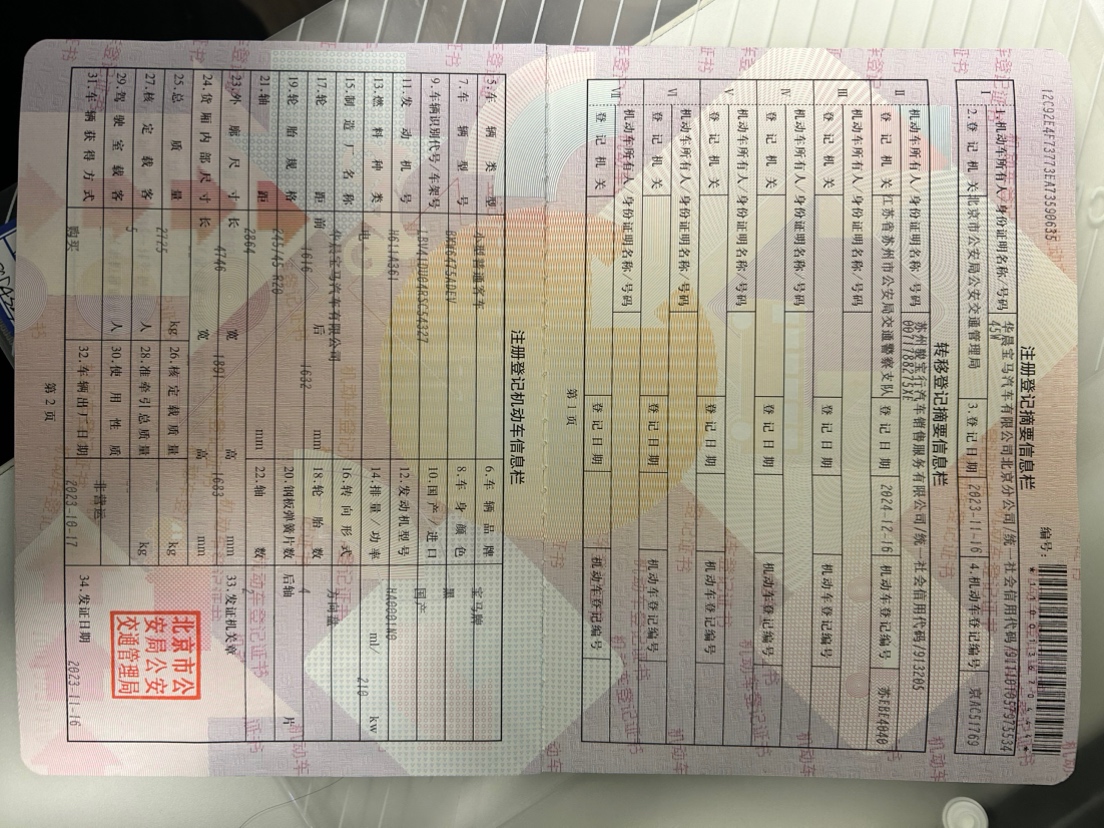 12C92E4F73773EA73590635
编号:
注册登记摘要信息栏
Ⅰ
1.机动车所有人/身份证明名称/号码 华晨宝马汽车有限公司北京分公司/统一社会信用代码/
45W
2.登记机关 北京市公安局公安交通管理局 3.登记日期 2023-11-16 4.机动车登记编号 京AC51769
转移登记摘要信息栏
Ⅱ
机动车所有人/身份证明名称/号码 苏州骏宝行汽车销售服务有限公司/统一社会信用代码/913205
登记机关 江苏省苏州市公安局交通警察支队 登记日期 2024-12-16 机动车登记编号
Ⅲ
机动车所有人/身份证明名称/号码
登记机关 登记日期 机动车登记编号
Ⅳ
机动车所有人/身份证明名称/号码
登记机关 登记日期 机动车登记编号
Ⅴ
机动车所有人/身份证明名称/号码
登记机关 登记日期 机动车登记编号
Ⅵ
机动车所有人/身份证明名称/号码
登记机关 登记日期 机动车登记编号
Ⅶ
机动车所有人/身份证明名称/号码
登记机关 登记日期 机动车登记编号
第1页
注册登记机动车信息栏
5.车辆类型 小型普通客车 6.车辆品牌 宝马牌
7.车辆型号 8.车身颜色 黑
9.车辆识别代号/车架号 10.国产/进口 国产
11.发动机号 H611A361 12.发动机型号 HA0001N0
13.燃料种类 电 14.排量/功率 ml/ 210 kw
15.制造厂名称 华晨宝马汽车有限公司 16.转向形式 方向盘
17.轮距 前 1616 后 1632 mm 18.轮胎数 4
19.轮胎规格 245/45 R20 20.钢板弹簧片数 后轴 片
21.轴距 2864 mm 22.轴数 2
23.外廓尺寸 长 4746 宽 1891 高 1683 mm 33.发证机关章
24.货厢内部尺寸 长 宽 高 mm
25.总质量 2725 kg 26.核定载质量 kg
27.核定载客 5 人 28.准牵引总质量 kg
29.驾驶室载客 人 30.使用性质 非营运
31.车辆获得方式 购买 32.车辆出厂日期 2023-10-17
北京市公
安局公安
交通管理局
34.发证日期 2023-11-16
第2页